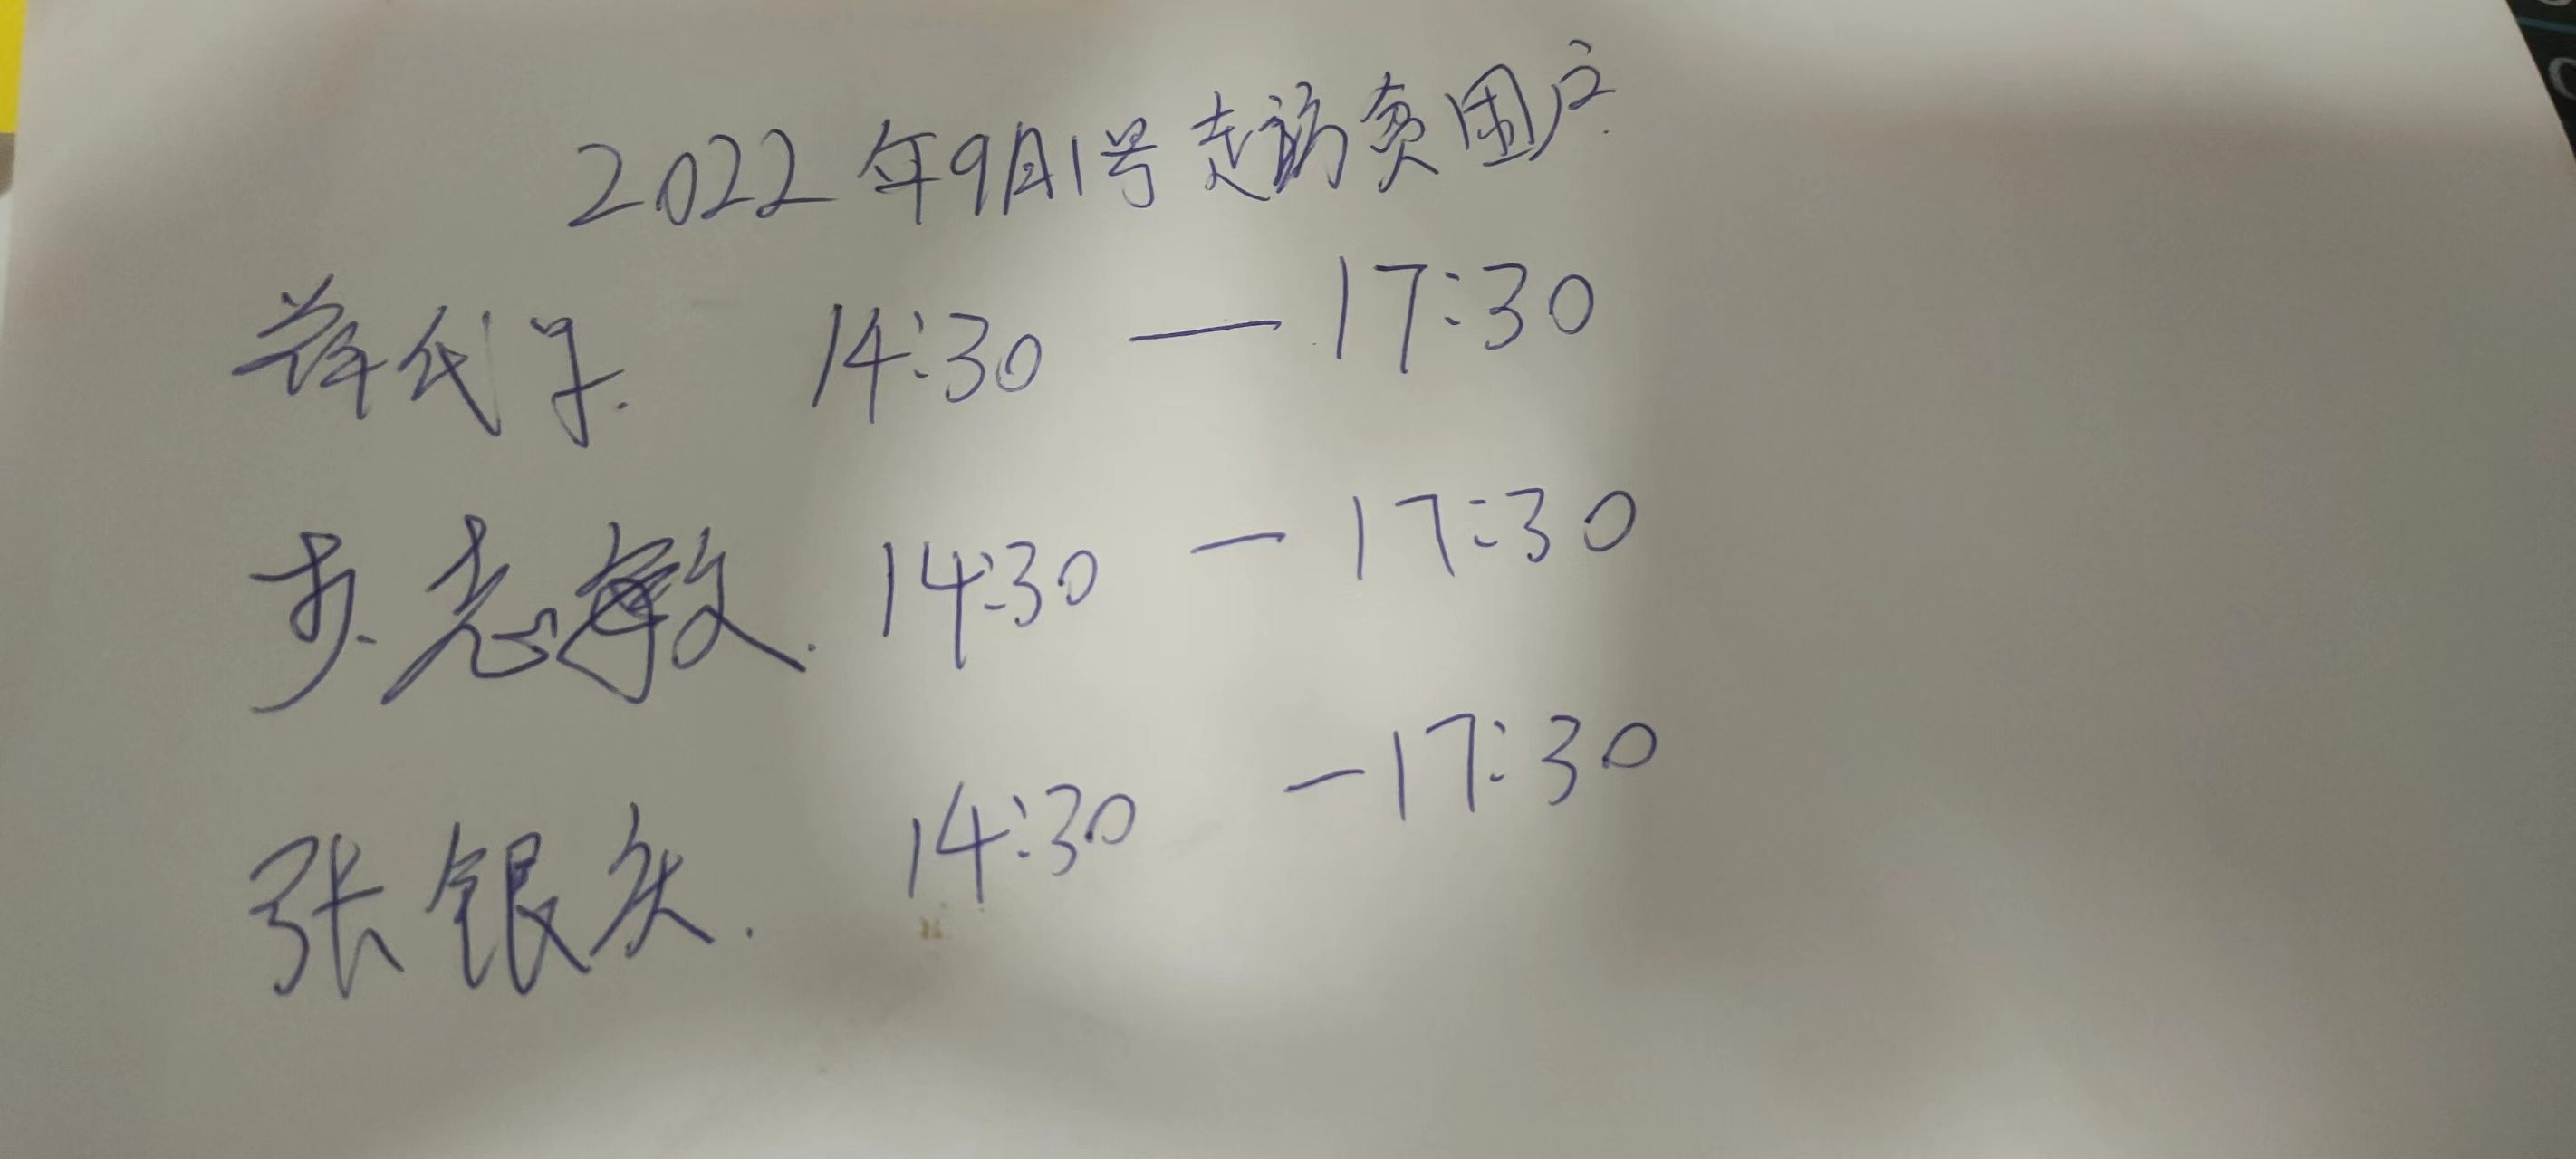 2022年9月1号走访贫困户.
14:30 — 17:30
志敏. 14:30 — 17:30
张银 14:30 — 17:30